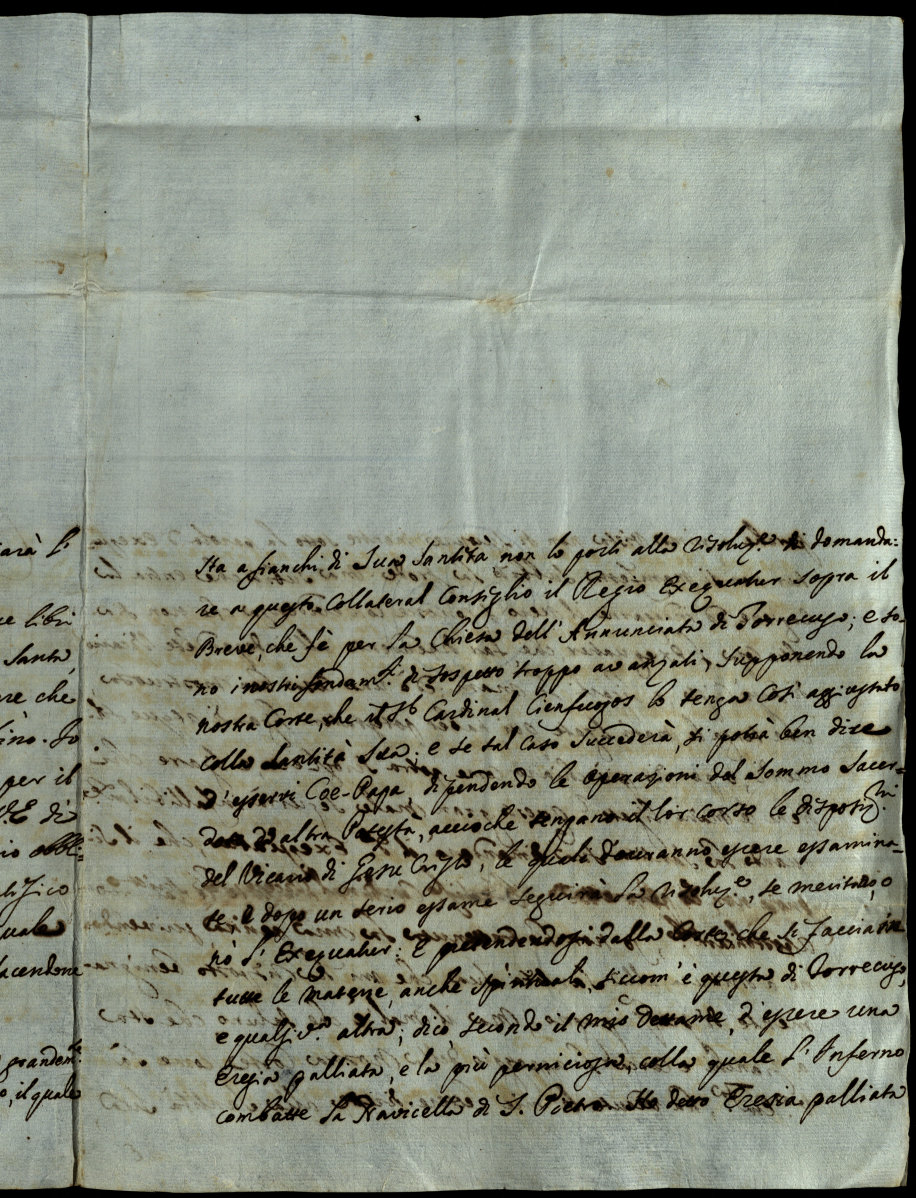 iarà l'
ue libri
Santa,
are che
ino. Io
per il
V.E. di
io obbl=
tifico
uale
facendone
grandem.te
o, il quale
sta a fianchi di Sua Santità, non lo porti alla risoluz.e di domanda=
re a questo Collateral Consiglio il Regio Exequatur sopra il
Breve, che fè per la Chiesa dell'Annunciata di Torrecuso; e so=
no i nostri fondam.ti di sospetto troppo avanzati, supponendo la
nostra Corte, che il S.r Cardinal Cienfuegos lo tenga così aggiustato
colla Santità Sua: e se tal caso succederà, si potrà ben dire
d'esservi Coe-Papa, dipendendo le operazioni del Sommo Sacer=
dote da altra Potestà, acciochè tengano il lor corso le disposiz.ni
del Vicario di Gesù Cristo, le quali dovranno essere essamina=
te: e dopo un serio essame seguirà la risoluz.e, se meritano, o
nò l'Exequatur: e pretendendosi dalla Corte, che si faccia in
tutte le materie, anche spirituali, sicom'è questa di Torrecuso,
e qualsiv.a altra; dico, secondo il mio dettame, d'essere una
Eresia palliata, e la più perniciosa, colla quale l'Inferno
combatte la Navicella di S. Pietro. Ho detto Eresia palliata